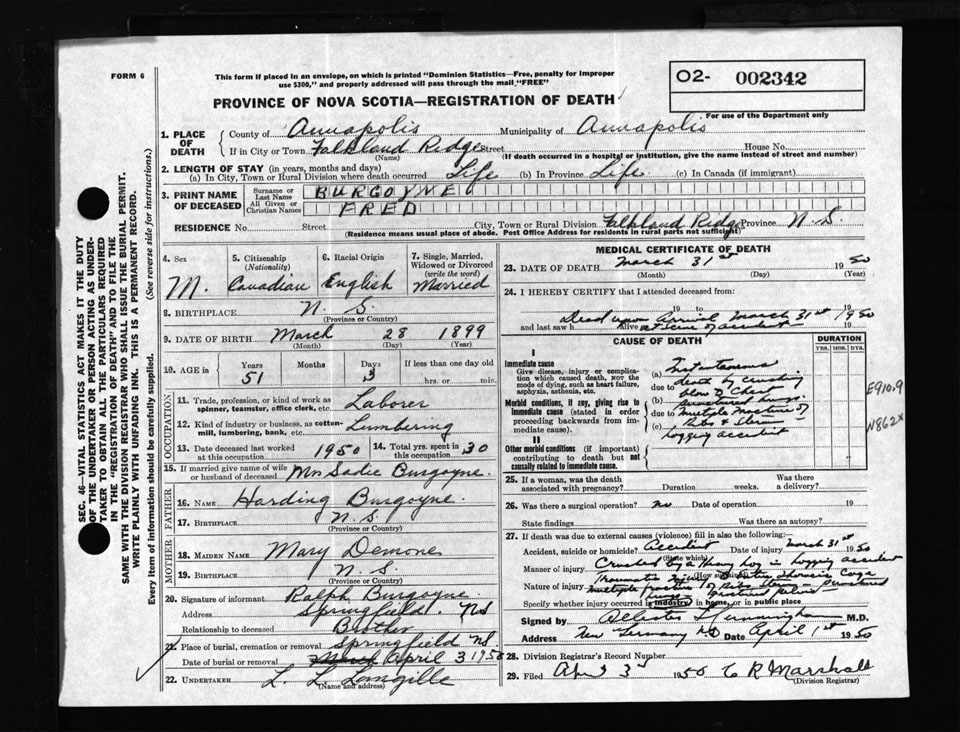 FORM 6
This form if placed in an envelope, on which is printed "Dominion Statistics—Free, penalty for improper
use $300," and properly addressed will pass through the mail "FREE"
O2- 002342
For use of the Department only
PROVINCE OF NOVA SCOTIA—REGISTRATION OF DEATH
1. PLACE OF DEATH
County of Annapolis Municipality of Annapolis
If in City or Town Falkland Ridge Street House No.
(Name) (If death occurred in a hospital or institution, give the name instead of street and number)
2. LENGTH OF STAY (in years, months and days)
(a) In City, Town or Rural Division where death occurred Life (b) In Province Life (c) In Canada (if immigrant)
3. PRINT NAME OF DECEASED
Surname or Last Name BURGOYNE
All Given or Christian Names FRED
RESIDENCE No. Street City, Town or Rural Division Falkland Ridge Province N.S.
(Residence means usual place of abode. Post Office Address for residents in rural parts not sufficient)
4. Sex M.
5. Citizenship (Nationality) Canadian
6. Racial Origin English
7. Single, Married, Widowed or Divorced (write the word) Married
8. BIRTHPLACE N.S
(Province or Country)
9. DATE OF BIRTH March 28 1899
(Month) (Day) (Year)
10. AGE in Years Months Days If less than one day old
51 3 hrs. or min.
OCCUPATION
11. Trade, profession, or kind of work as spinner, teamster, office clerk, etc. Laborer
12. Kind of industry or business, as cotton-mill, lumbering, bank, etc. Lumbering
13. Date deceased last worked at this occupation 1950
14. Total yrs. spent in this occupation 30
15. If married give name of wife or husband of deceased Mrs Sadie Burgoyne.
FATHER
16. Name Harding Burgoyne.
17. Birthplace N.S.
(Province or Country)
MOTHER
18. Maiden Name Mary Demone
19. Birthplace N.S
(Province or Country)
20. Signature of informant Ralph Burgoyne.
Address Springfield. NS
Relationship to deceased Brother
21. Place of burial, cremation or removal Springfield NS
Date of burial or removal March April 3 1950
22. UNDERTAKER L. L. Langille
(Name and address)
MEDICAL CERTIFICATE OF DEATH
23. DATE OF DEATH March 31st 1950
(Month) (Day) (Year)
24. I HEREBY CERTIFY that I attended deceased from:
19 to 19
Dead upon arrival March 31st 1950
and last saw h alive at scene of accident 19
CAUSE OF DEATH
DURATION
YRS. MOS. DYS.
I
Immediate cause
Give disease, injury or complication which caused death, not the mode of dying, such as heart failure, asphyxia, asthenia, etc.
(a) Instantaneous
due to death by crushing
blow of chest
Morbid conditions, if any, giving rise to immediate cause (stated in order proceeding backwards from immediate cause).
(b) punctured lungs.
due to multiple fracture of
(c) Ribs & Sternum
II
Other morbid conditions (if important) contributing to death but not causally related to immediate cause.
logging accident
E910.9
N862X
25. If a woman, was the death associated with pregnancy? Duration weeks. Was there a delivery?
26. Was there a surgical operation? no Date of operation 19
State findings Was there an autopsy?
27. If death was due to external causes (violence) fill in also the following:
Accident, suicide or homicide? Accident Date of injury March 31st 1950
(State which)
Manner of injury Crushed by a heavy log in logging accident
(How sustained)
Nature of injury Traumatic Thoracic Cage
multiple fracture of Ribs punctured
lungs fractured pelvis
Specify whether injury occurred in industry, in home, or in public place
Signed by M.D.
Address New Germany NS Date April 1st 1950
28. Division Registrar's Record Number
29. Filed Apr 3rd 1950 C R Marshall
(Division Registrar)
SEC. 46—VITAL STATISTICS ACT MAKES IT THE DUTY
OF THE UNDERTAKER OR PERSON ACTING AS UNDER-
TAKER TO OBTAIN ALL THE PARTICULARS REQUIRED
IN THE "REGISTRATION OF DEATH" AND TO FILE THE
SAME WITH THE DIVISION REGISTRAR WHO SHALL ISSUE THE BURIAL PERMIT.
WRITE PLAINLY WITH UNFADING INK. THIS IS A PERMANENT RECORD.
Every item of information should be carefully supplied. (See reverse side for instructions.)